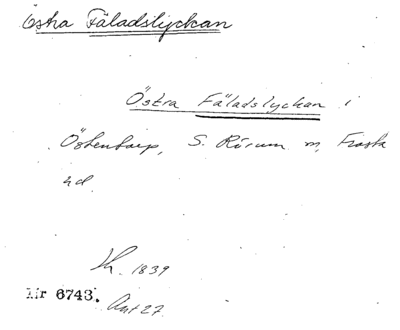 Östra Fäladslyckan
Östra Fäladslyckan i
Östentorp, S. Rörum m, Frosta
hd.
Kr. 1839
Nr 6743. Ant 27.